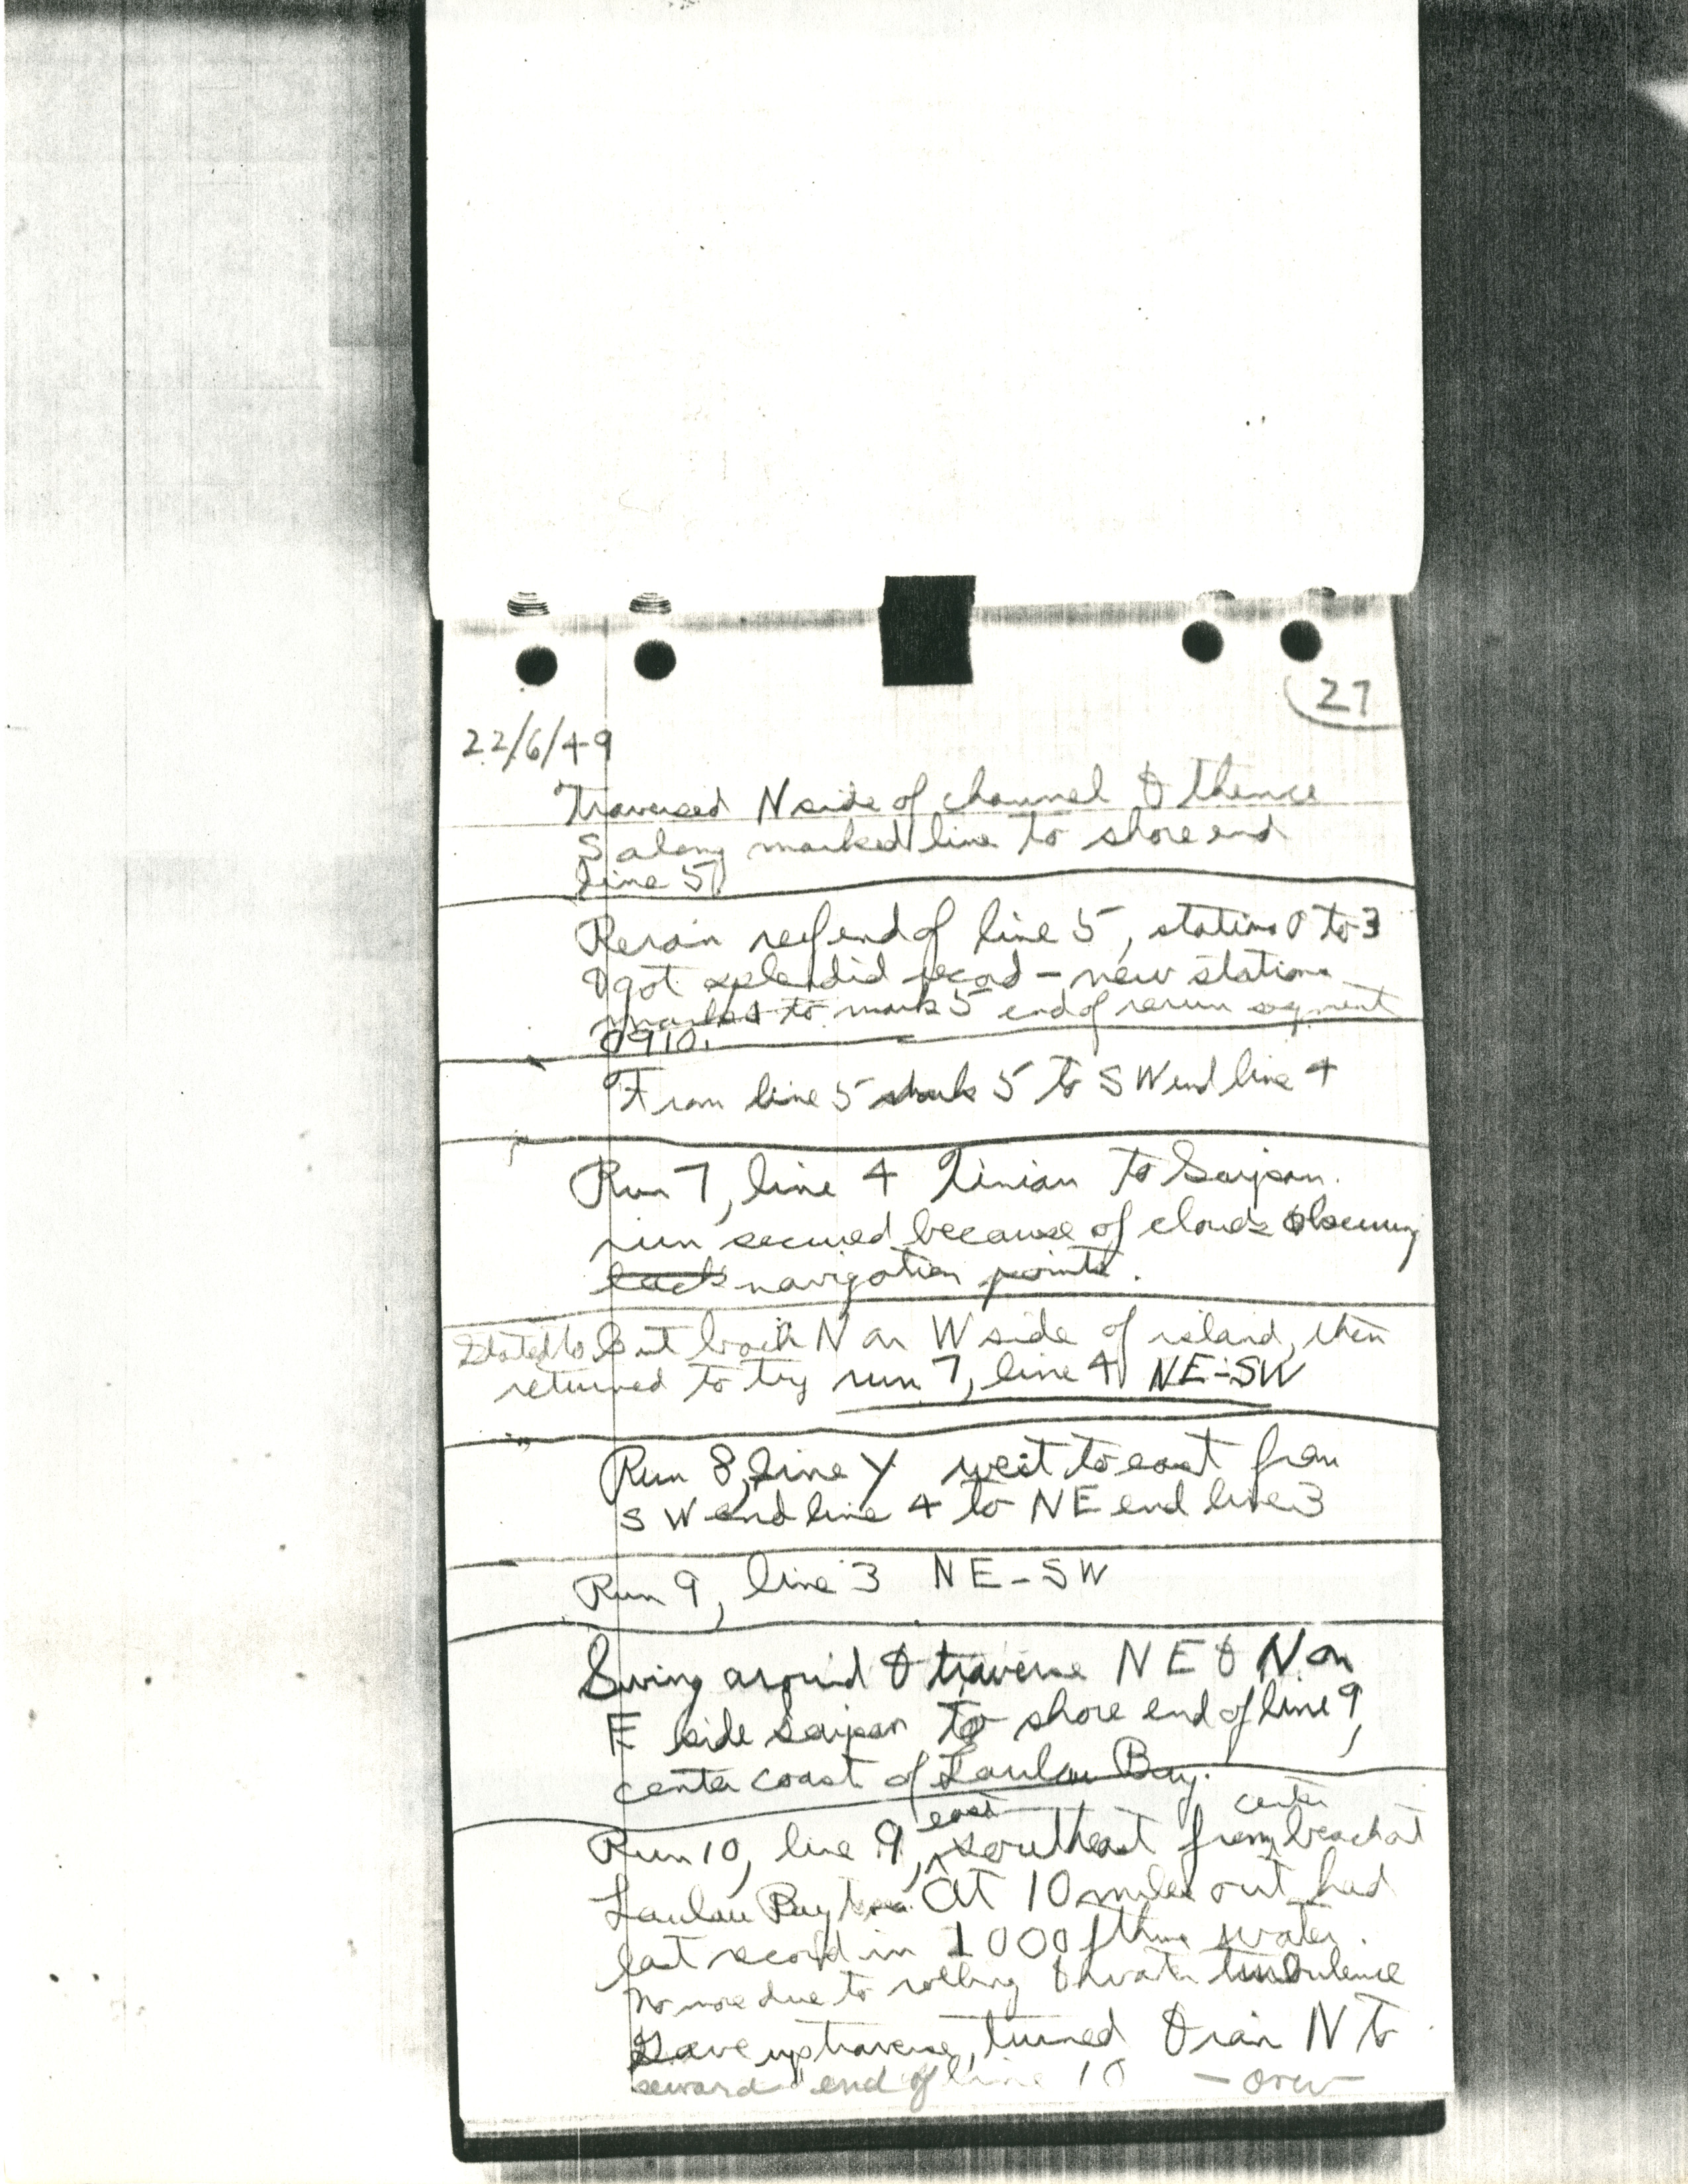 27
22/6/49
Traversed N side of channel & thence
S along marked line to shore end
line 5
Reran reef end of line 5, stations 0 to 3
& got splendid record — new station
marks to mark 5 end of rerun segment
0910.
From line 5 mark 5 to SW end line 4
Run 7, line 4 Tinian to Saipan.
run secured because of clouds obscuring
back navigation points.
Started to cut back N on W side of island, then
returned to try run 7, line 4 NE-SW
Run 8, line Y west to east from
SW end line 4 to NE end line 3
Run 9, line 3 NE-SW
Swing around & traverse NE & N on
E side Saipan to shore end of line 9,
center coast of Laulau Bay.
east center
Run 10, line 9, southeast from beach at
Laulau Bay At 10 miles out had
last record in 1000 fthms water.
No more due to rolling & water turbulence
Gave up traverse, turned & ran N to
seaward end of line 10 — over —